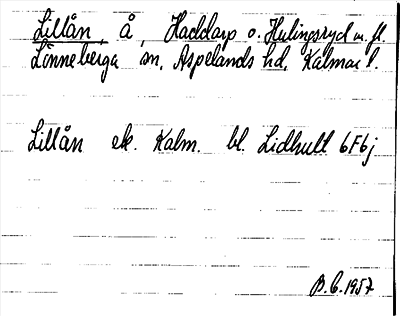 Lillån, å, Haddarp o. Hulingsryd m. fl.
Lönneberga sn, Aspelands hd, Kalmar l.
Lillån ek. Kalm. bl. Lidhult 6F6j
B.E. 1957